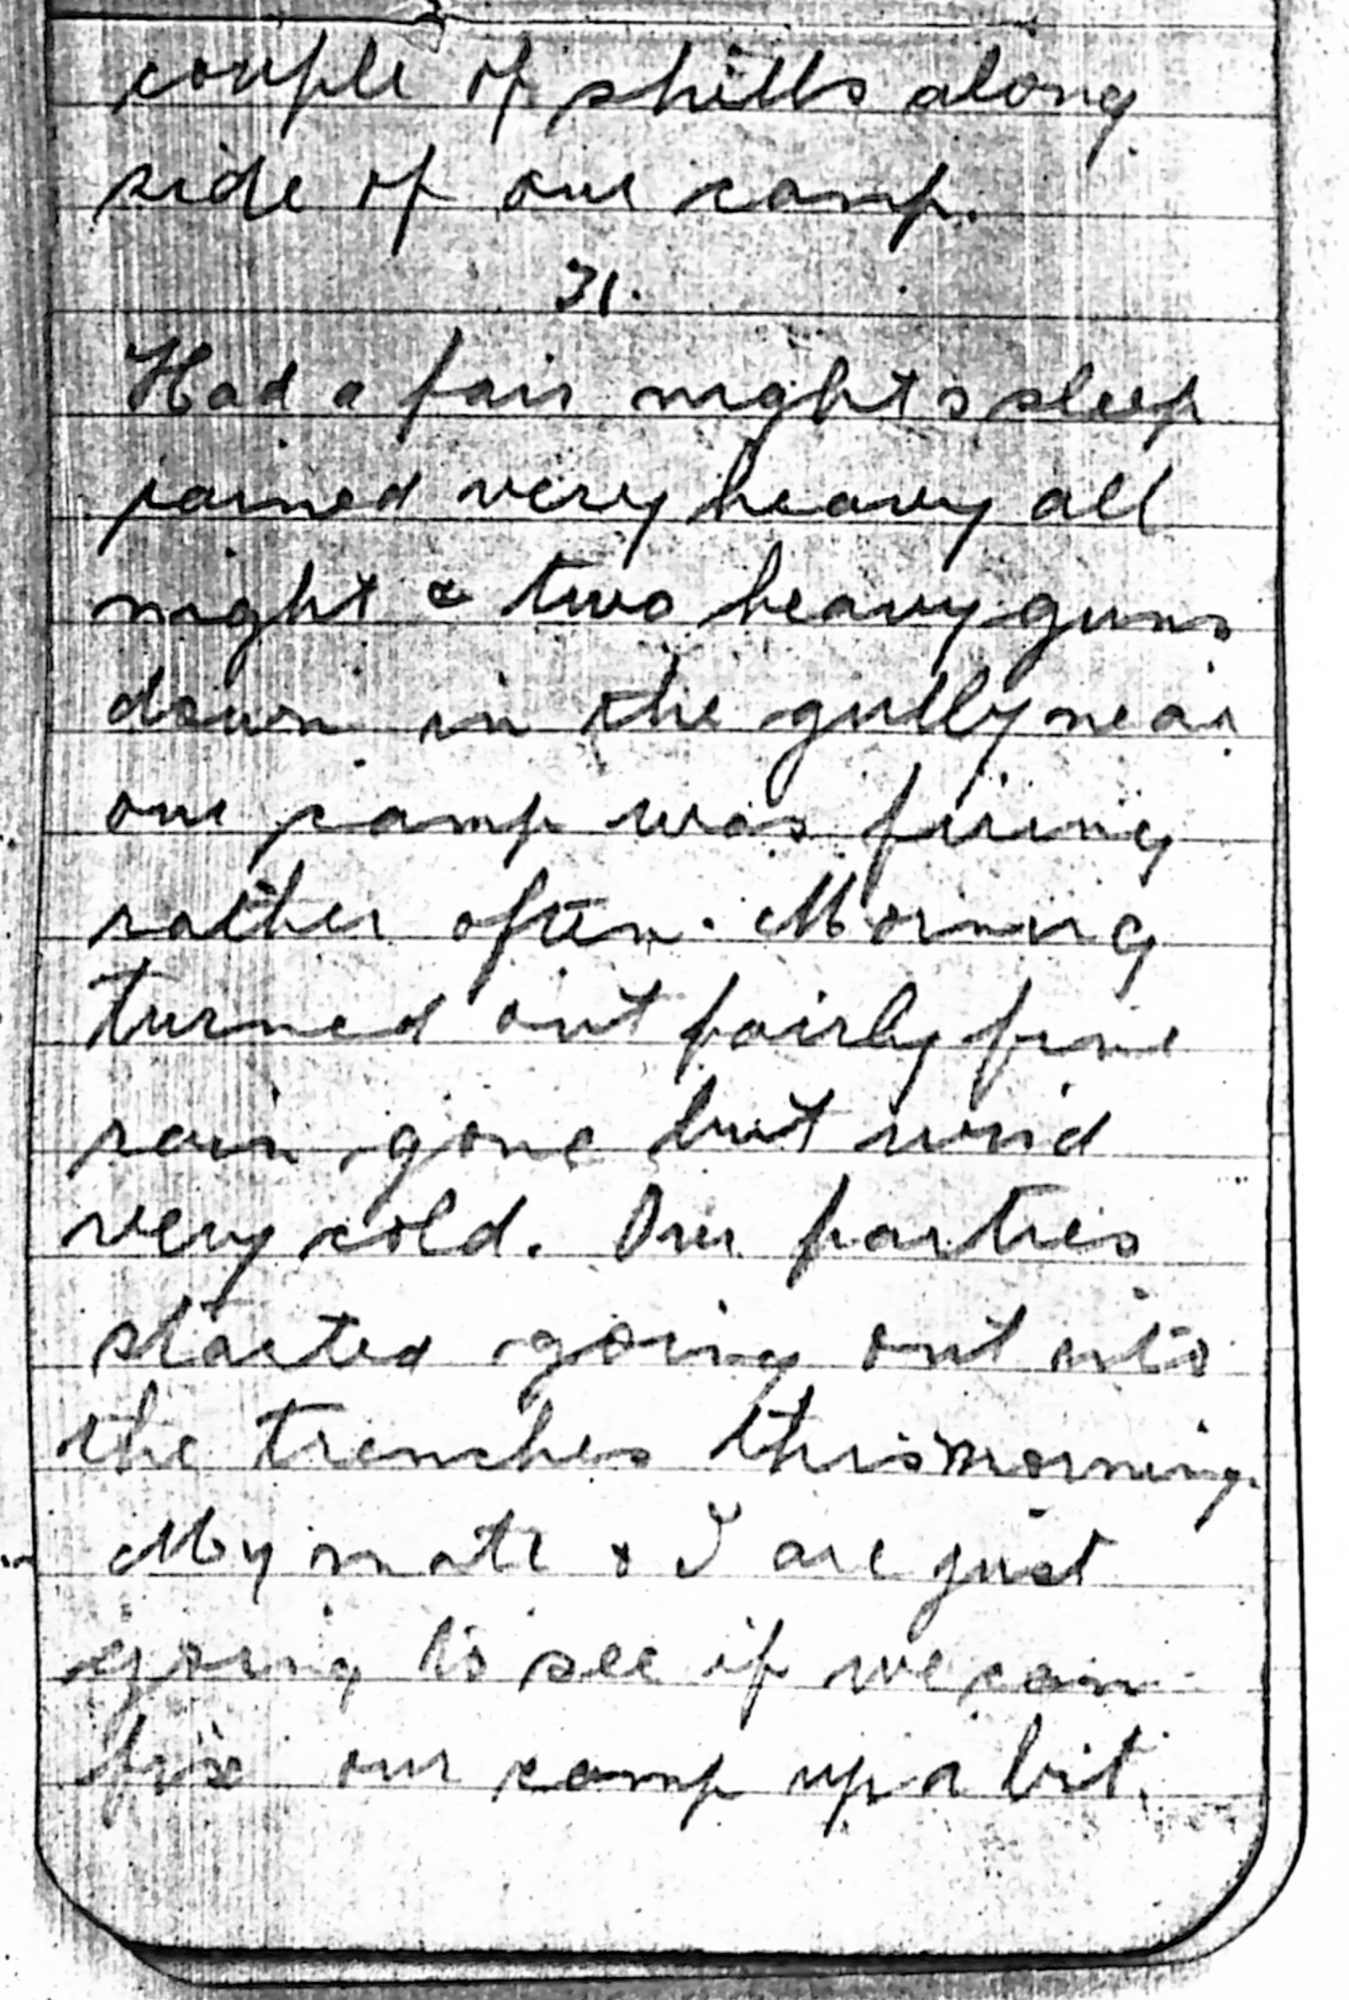 couple of shells along
side of our camp.
31.
Had a fair nights sleep
rained very heavy all
night & two heavy guns
down in the gully near
our camp was firing
rather often. Morning
turned out fairly fine
rain gone but wind
very cold. Our parties
started going out into
the trenches this morning.
My mate & I are just
going to see if we can
fix our camp up a bit.